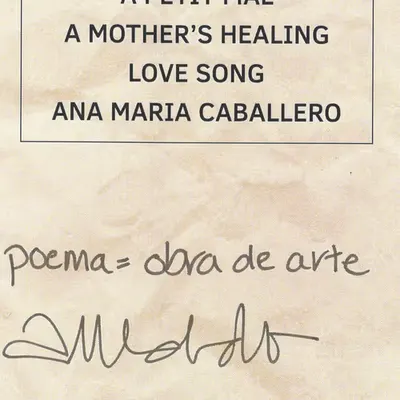 A PETIT MAL
A MOTHER'S HEALING
LOVE SONG
ANA MARIA CABALLERO
poema = obra de arte